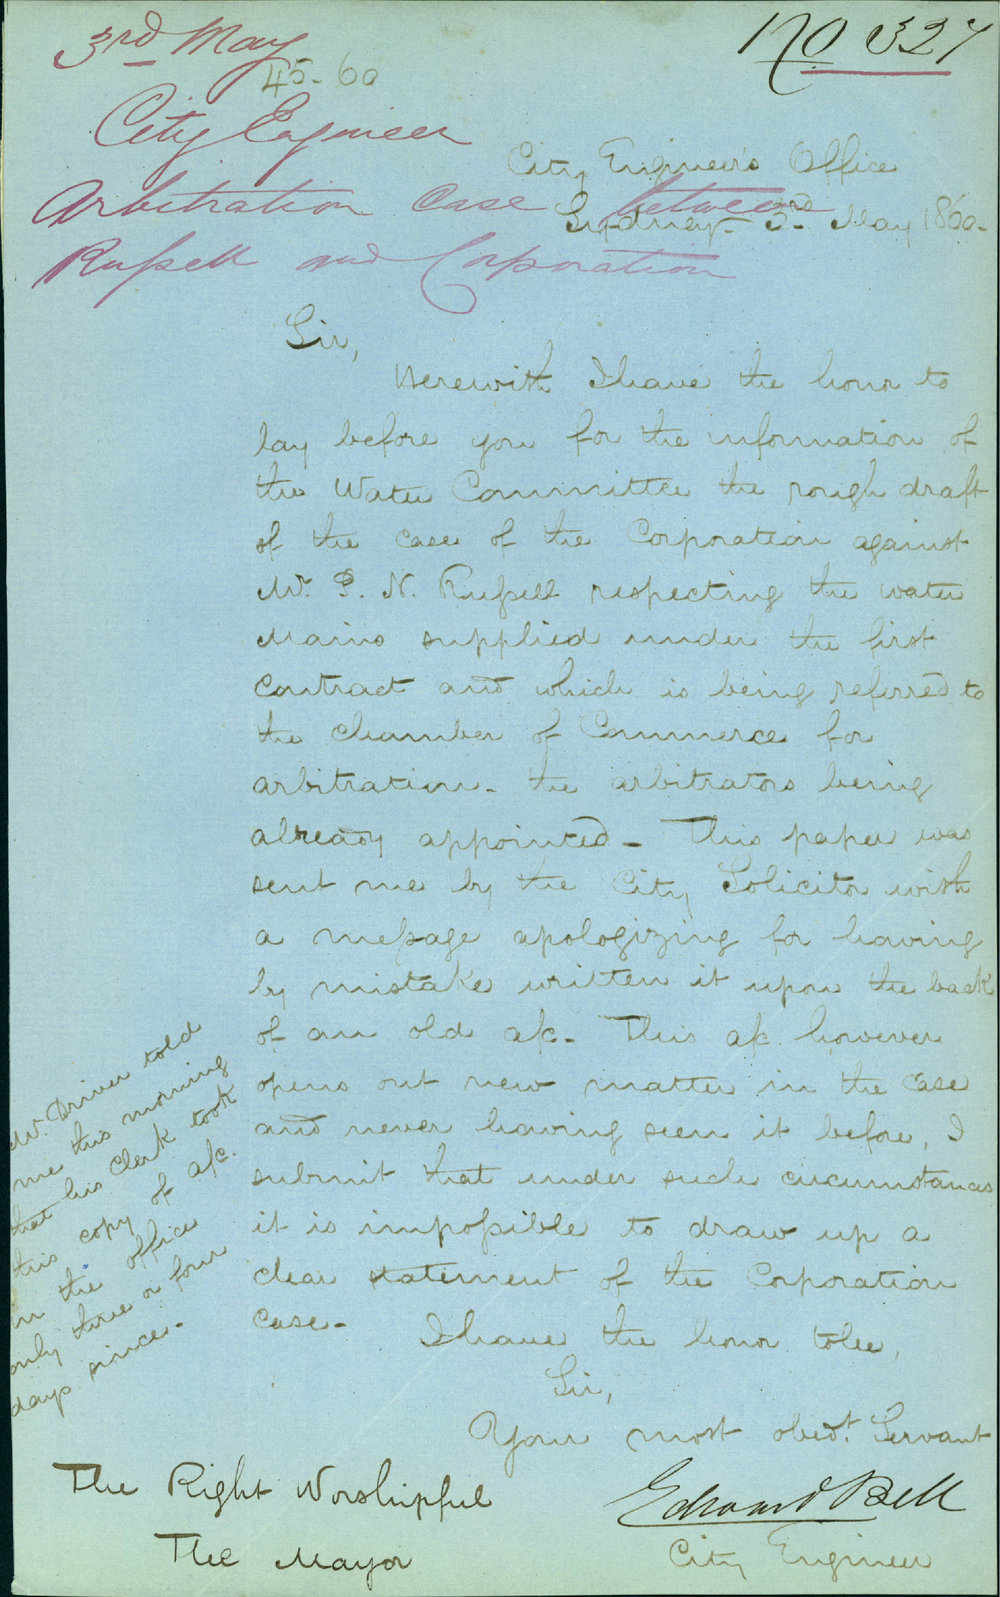 3rd May
No 327
45-60
City Engineer
City Engineer's Office
Arbitration Case between
Sydney - 3rd May 1860 -
Russell and Corporation
Sir,
Herewith I have the honor to
lay before you for the information of
the Water Committee the rough draft
of the case of the Corporation against
Mr. P. N. Russell respecting the water
Mains supplied under the first
Contract and which is being referred to
the Chamber of Commerce for
arbitration - the arbitrators being
already appointed - This paper was
sent me by the City Solicitor with
a message apologizing for having
by mistake written it upon the back
of an old a/c - This a/c however
opens out new matter in the case
and never having seen it before, I
submit that under such circumstances
it is impossible to draw up a
clear statement of the Corporation
Case -
Mr. Driver told
me this morning
that his Clerk took
this copy of a/c.
in the office
only three or four
days since -
I have the honor to be,
Sir,
Your most obedt. Servant
Edward Bell
City Engineer
The Right Worshipful
The Mayor